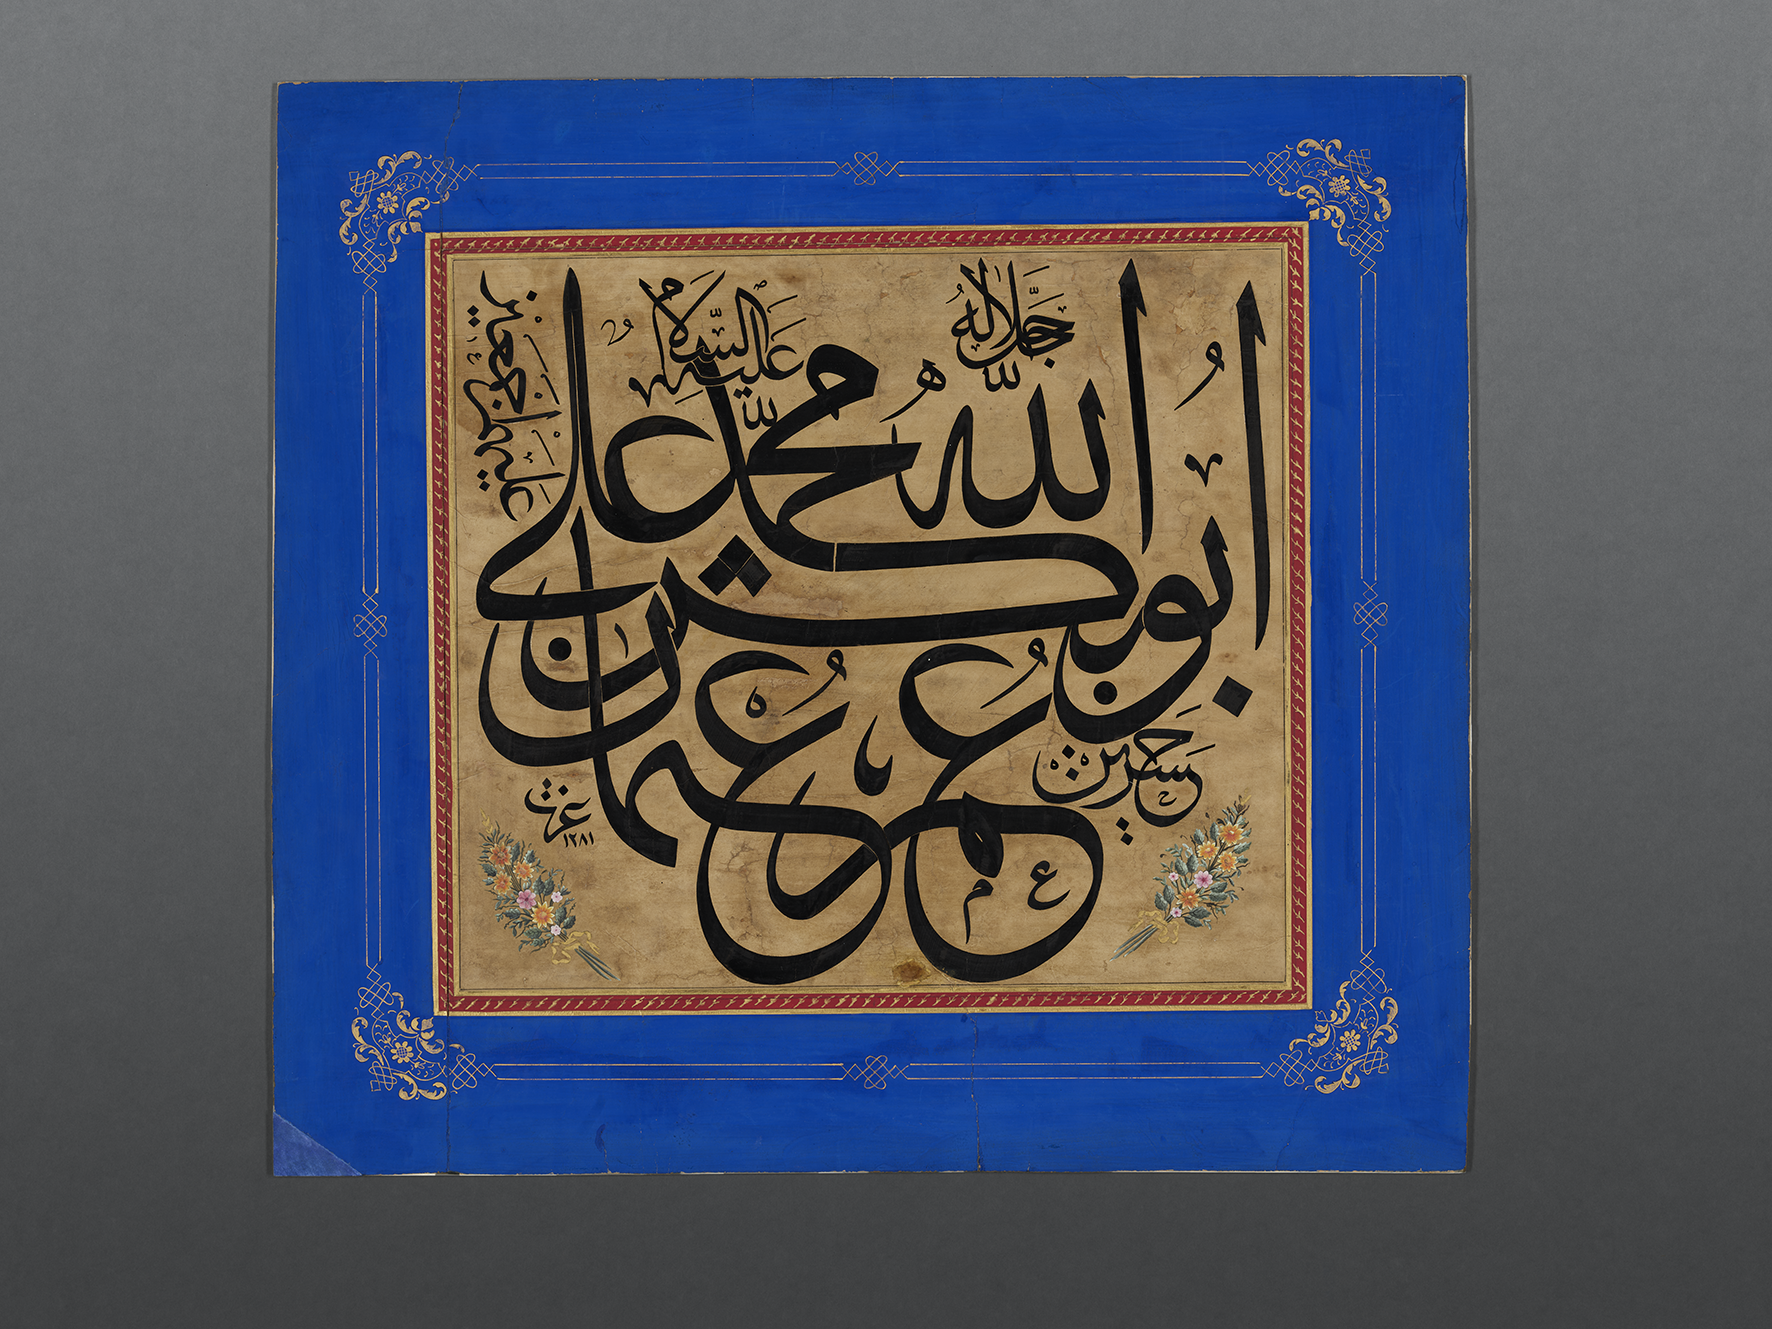 الله جل جلاله
محمد عليه السلام
ابو بكر
عمر
عثمان
علي
حسن حسين
عليهم اجمعين
عزت
١٢٨١